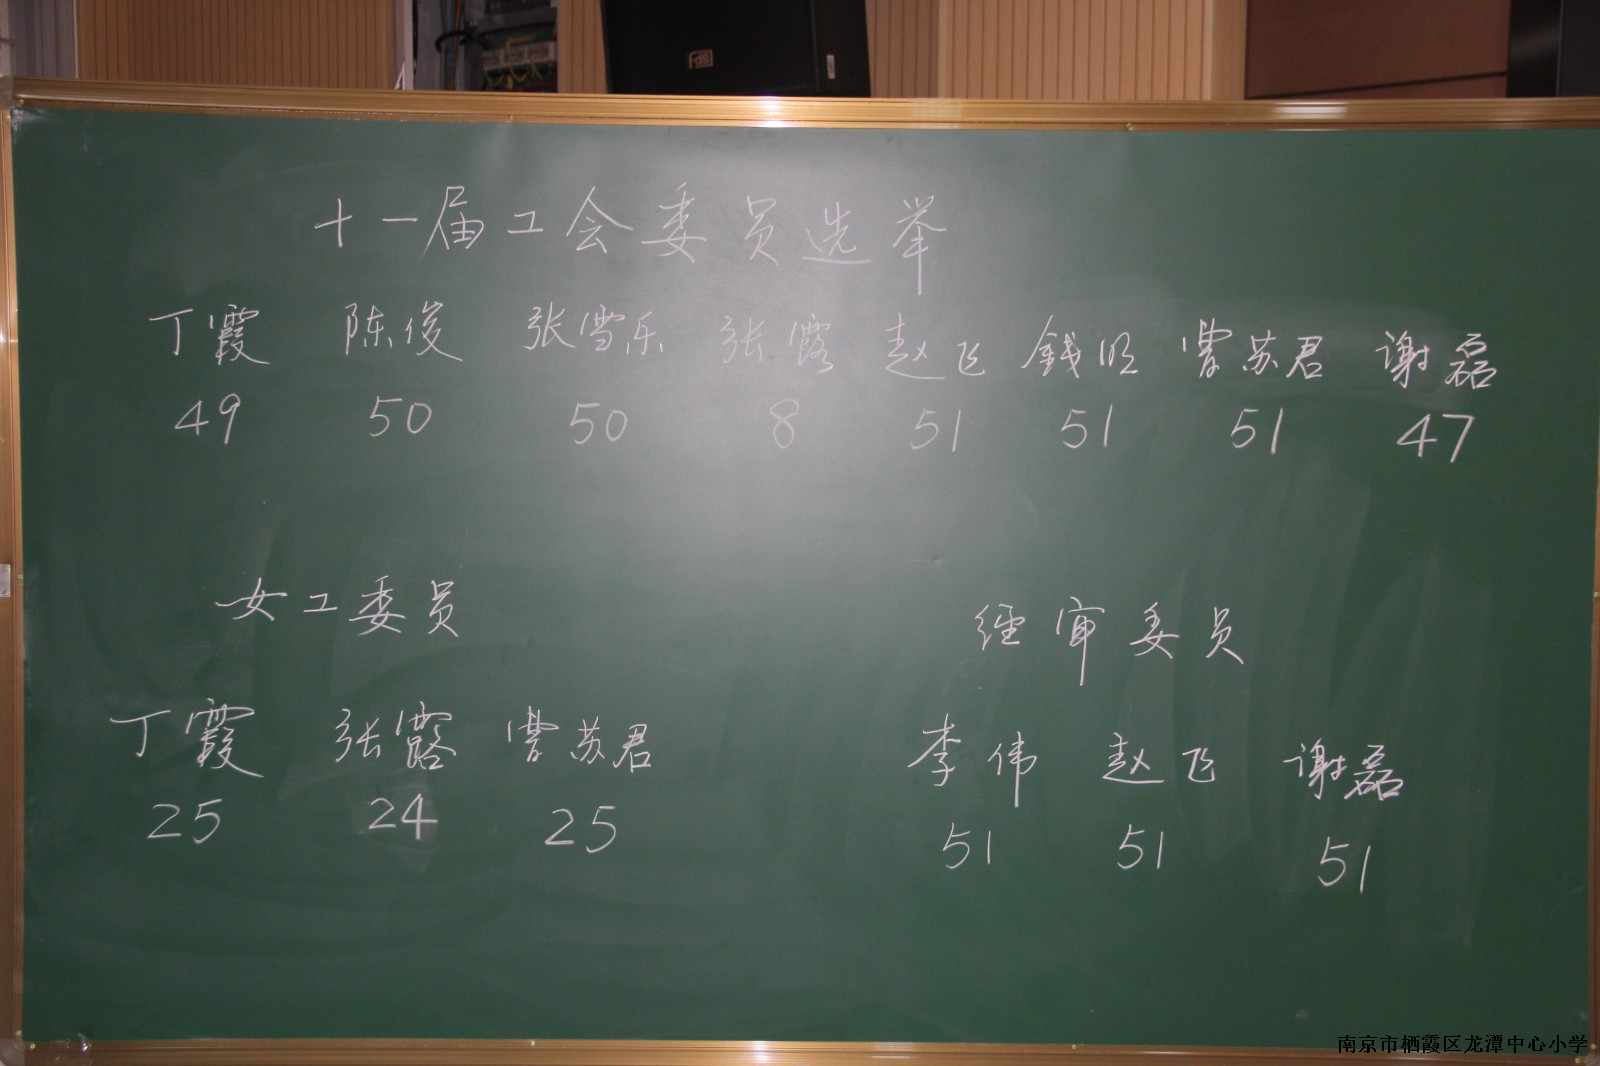 十一届工会委员选举
丁霞 陈俊 张雪乐 张露 赵飞 钱明 曹苏君 谢磊
49 50 50 8 51 51 51 47
女工委员 经审委员
丁霞 张露 曹苏君 李伟 赵飞 谢磊
25 24 25 51 51 51
南京市栖霞区龙潭中心小学